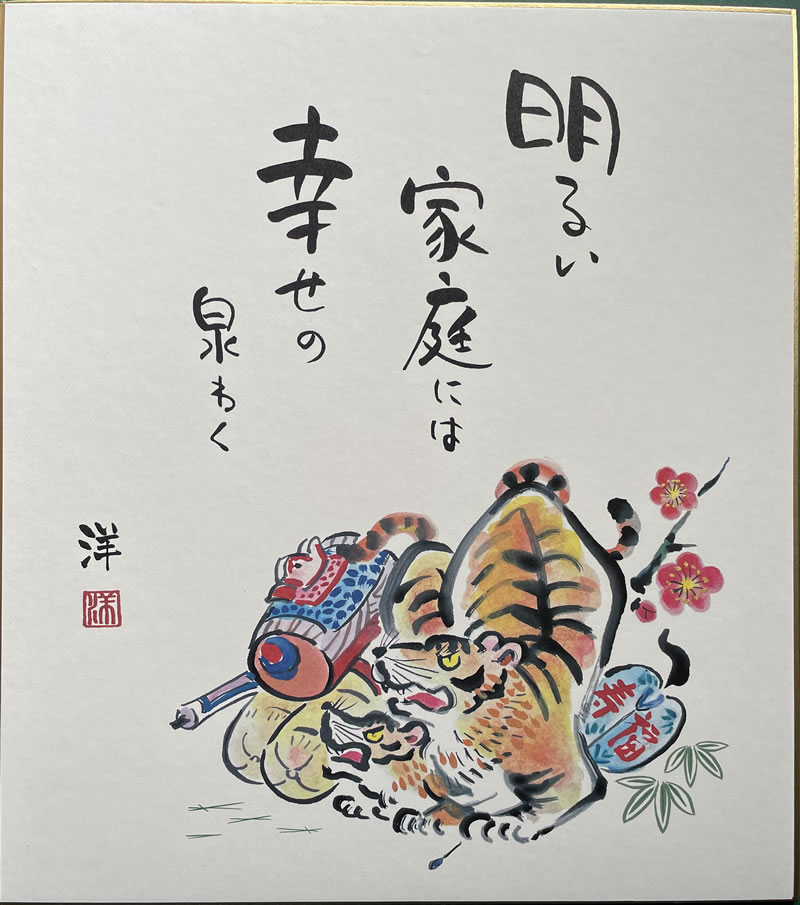 明るい
家庭には
幸せの
泉わく
洋
洋
寿福